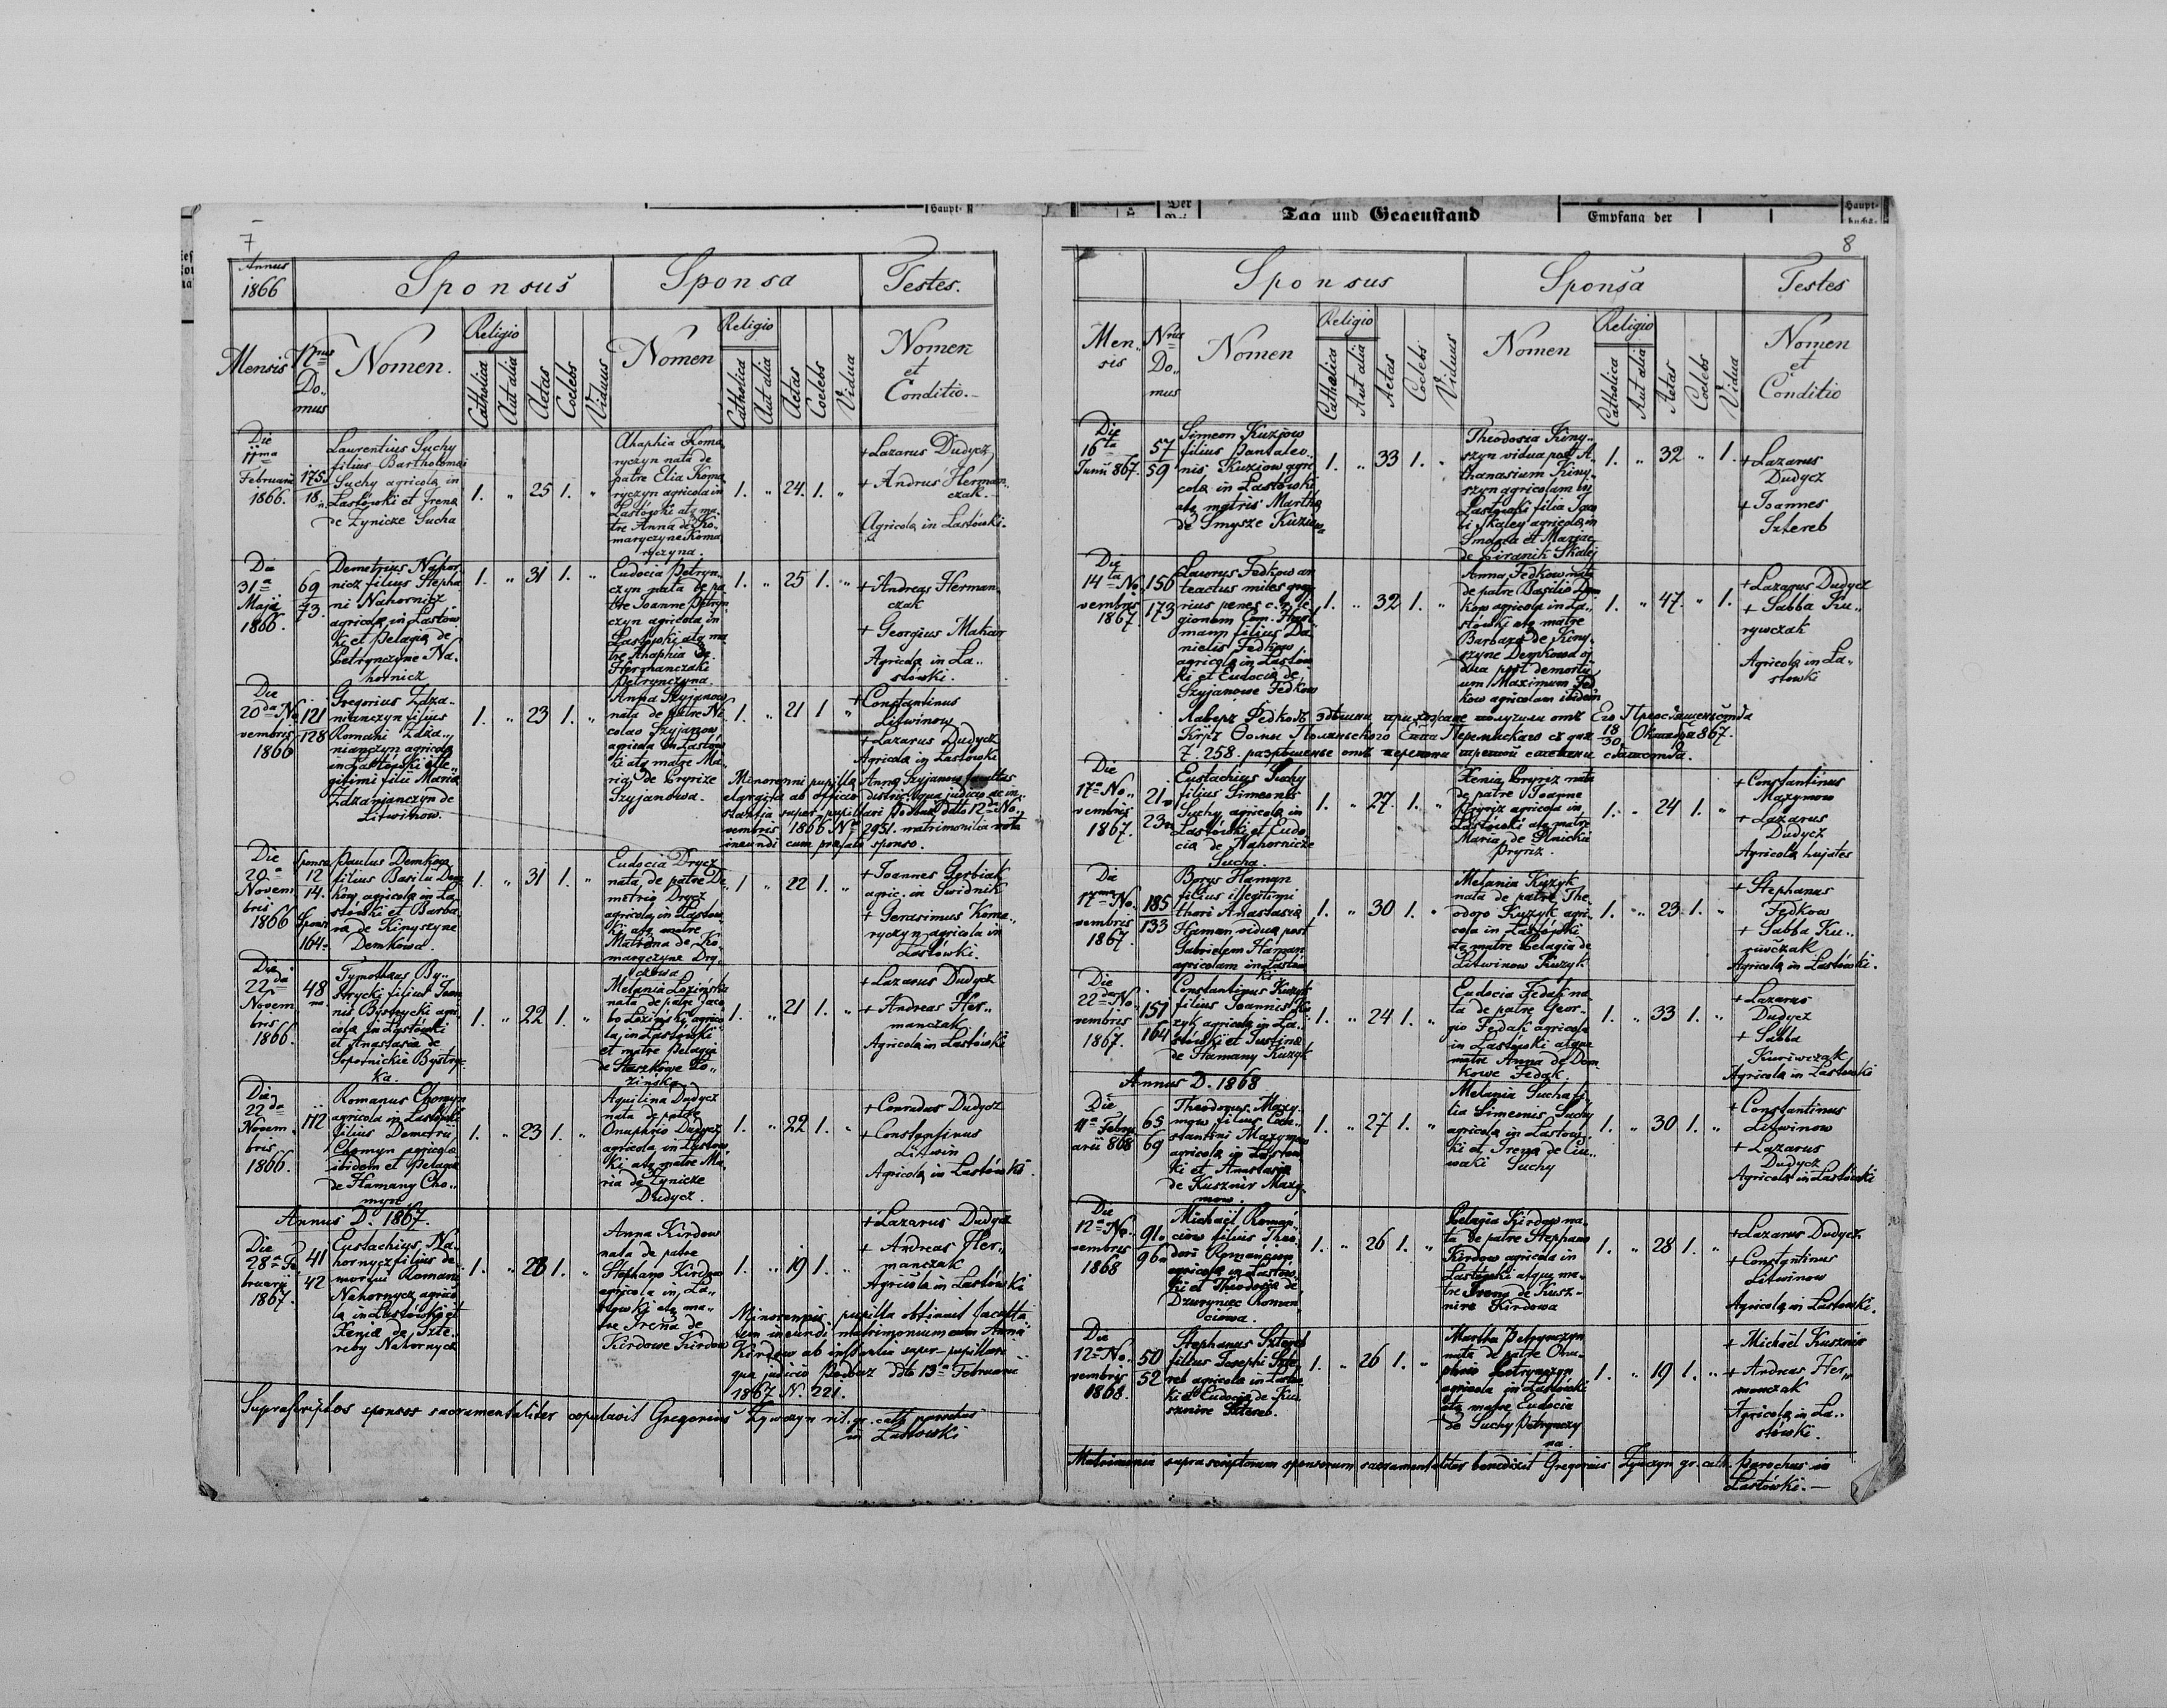 Haupt-
7
Annus
1866
Sponsus
Sponsa
Testes.
Mensis
Nrus
Do„
mus
Nomen.
Religio
Catholica
Aut alia
Aetas
Coelebs
Viduus
Nomen
Religio
Catholica
Aut alia
Aetas
Coelebs
Vidua
Nomen
et
Conditio.
Die
11ma
Februarii
1866.
175
18.
Laurentius Suchy
filius Bartholomei
Suchy agricola in
Lastówki et Irena
de Zynicze Sucha
1. „ 25 1. „
Ahaphia Koma
ryczyn nata de
patre Elia Koma
ryczyn agricola in
Lastówki atq ma„
tre Anna de Ko„
maryczyne Koma
ryczyna.
1. „ 24. 1. „
+ Lazarus Dudycz
+ Andrus Herman„
czak.
Agricola in Lastówki.
Die
31a
Maja
1866.
69
73.
Demetrius Nahor„
nicz filius Stepha
ni Nahornicz
agricola in Lastów
ki et Pelagia de
Petrynczyne Na„
hornicz
1. „ 31 1. „
Eudocia Petryn„
czyn nata de pa
tre Ioanne Petryn
czyn agricola in
Lastówki atq ma
tre Ahaphia de
Hermanczaki
Petrynczyna.
1. „ 25 1. „
+ Andreas Herman„
czak
+ Georgius Mahar
Agricola in La„
stówki.
Die
20da No
vembris
1866
121
128
Gregorius Zdza„
nianczyn filius
Romani Zdza„
nianczyn agricola
in Lastówki ille„
gitimi filii Maria
Zdzanianczyn de
Litwinow.
1. „ 23 1. „
Anna Szyjanow
nata de patre Ni
colao Szyjanow
agricola in Lastów
ki atq matre Ma„
ria de Pryrize
Szyjanowa.
1. „ 21 1 „
+ Constantinus
Litwinow
+ Lazarus Dudycz
Agricola in Lastowki
Minorenni pupilla Anna Szyjanow facultas
elargita ab officio district. qua judicio ac in„
stantia super pupillari Podbuz ddto 12da No„
vembris 1866 Nro 2951. matrimonilia vota
ineundi cum praefato sponso.
Die
20a
Novem
bris
1866
Sponsa
12
14.
Sponsi
164.
Paulus Demkow
filius Basilii Dem
kow agricola in La„
stówki et Barba
ra de Kinyszyne
Demkowa.
1. „ 31 1. „
Eudocia Drycz
nata de patre De„
metrio Drycz
agricola in Lastow„
ki atq matre
Matrona de Ko„
maryczyne Dry„
czowa
1 „ 22 1. „
+ Ioannes Gerbiak
agric. in Swidnik
+ Gerasimus Koma„
ryczyn agricola in
Lastówki.
Die
22da
Novem
bris
1866.
48
Tymotheus By„
strycki filius Ioan
nis Bystrycki agri
cola in Lastówki
et Anastasia de
Sopotnickie Bystryc
ka.
1. „ 22 1. „
Melania Lozińska
nata de patre Jaco
bo Loziński agrico
la in Lastówki
et matre Pelagia
de Staszkowe Lo„
zińska
1. „ 21 1. „
+ Lazarus Dudycz
+ Andreas Her„
manczak
Agricola in Lastówki
Die
22da
Novem
bris
1866.
112
Romanus Chomyn
agricola in Lastówki
filius Demetrii
Chomyn agricola
ibidem et Pelagia
de Hamany Cho„
myn
1. „ 23 1. „
Aquilina Dudycz
nata de patre
Onuphrio Dudycz
agricola in Lastów
ki atq matre Ma„
ria de Zynicze
Dudycz.
1. „ 22 1. „
+ Conradus Dudycz
+ Constantinus
Litwin
Agricola in Lastówki.
Annus D. 1867.
Die
28a Fe
bruarii
1867.
41
42
Eustachius Na„
hornycz filius de
mortui Romani
Nahornycz agrico
la in Lastówki et
Xenia de Szte„
reby Nahornycz
1. „ 28 1. „
Anna Kirdow
nata de patre
Stephano Kirdow
agricola in La„
stówki atq ma„
tre Irena de
Kirdowe Kirdow
1. „ 19 1. „
+ Lazarus Dudycz
+ Andreas Her„
manczak
Agricola in Lastówki
Minorennis pupilla obtinuit faculta
tem ineundi matrimonium cum Anna
Kirdow ab instantia super-pupillari
qua judicio Podbuz Ddto 13a Februarii
1867 N. 221.
Suprascriptos sponsos sacramentaliter copulavit Gregorius Zywczyn rit. gr. cath parochus
in Lastowki
Der
Tag und Gegenstand
Empfang der
Haupt-
8
Sponsus
Sponsa
Testes
Men„
sis
Nrus
Do„
mus
Nomen
Religio
Catholica
Aut alia
Aetas
Coelebs
Viduus
Nomen
Religio
Catholica
Aut alia
Aetas
Coelebs
Vidua
Nomen
et
Conditio
Die
16ta
Junii 867.
57
59
Simeon Kuziow
filius Pantaleo„
nis Kuziow agri
cola in Lastówki
atq matris Martha
de Smysze Kuziow
1. „ 33 1. „
Theodosia Kiny„
szyn vidua post A„
thanasium Kiny„
szyn agricolam in
Lastówki filia Iaco
bi Skaley agricola in
Smozea et Mariae
de Piranik Skalej
1. „ 32 „ 1.
+ Lazarus
Dudycz
+ Ioannes
Sztereb
Die
14ta No„
vembris
1867
156
173
Laurus Fedkow an
teactus miles grega
rius penes c. r. le
gionem Com. Hart
mann filius Da„
nielis Fedkow
agricola in Lastów
ki et Eudocia de
Szyjanowe Fedkow
1. „ 32 1. „
Anna Fedkow nata
de patre Basilio Dem
kow agricola in La„
stówki atq matre
Barbara de Kiny„
szyne Demkowa vi
dua post demortu
um Maximum Fed
kow agricolam ibidem
1. „ 47. „ 1.
+ Lazarus Dudycz
+ Sabba Ku„
rywczak
Agricola in La„
stowki
Лаверъ Федковъ здѣшни прихожане получили отъ Его Преосвященства
Куръ Ѳомы Полянского Еппа Перемиского съ дня 18/30 Октобра 867.
7. 258. разрѣшенье отъ третой степени
Die
17a No„
vembris
1867.
21
23
Eustachius Suchy
filius Simeonis
Suchy, agricola in
Lastówki et Eudo
cia de Nahornicze
Sucha.
1. „ 27. 1. „
Xenia Pryriz nata
de patre Ioanne
Pryriz agricola in
Lastówki atq matre
Maria de Ilnickie
Pryriz.
1. „ 24 1. „
+ Constantinus
Mazymow
+ Lazarus
Dudycz
Agricola hujates
Die
17ma No„
vembris
1867
185
133
Borys Haman
filius illegitimi
thori Anastasia
Haman vidua post
Gabrielem Haman
agricolam in Lastów
ki
1. „ 30 1. „
Melania Kuzyk
nata de patre The
odoro Kuzyk agri„
cola in Lastówki
atq matre Pelagia de
Litwinow Kuzyk
1. „ 23 1. „
+ Stephanus
Fedkow
+ Sabba Ku„
riwczak
Agricola in Lastówki.
Die
22da No„
vembris
1867.
157
164
Constantinus Kuzyk
filius Ioannis Ku
zyk agricola in La„
stówki et Justina
de Hamany Kuzyk
1. „ 24 1. „
Eudocia Fedak na„
ta de patre Geor„
gio Fedak agricola
in Lastówki atque
matre Anna de Dem
kowe Fedak
1. „ 33 1. „
+ Lazarus
Dudycz
+ Sabba
Kuriwczak
Agricola in Lastówki
Annus D. 1868
Die
11a Febru
arii 868
65
69
Theodorus Mazy„
mow filius Con„
stantini Mazymow
agricola in Lastow
ki et Anastasia
de Kusznir Mazy
mow.
1. „ 27 1. „
Melania Sucha fi„
lia Simeonis Suchy
agricola in Lastow„
ki et Irena de Ciu„
waki Suchy
1. „ 30 1. „
+ Constantinus
Litwinow
+ Lazarus
Dudycz
Agricola in Lastówki
Die
12a No„
vembris
1868
91.
96
Michaël Roman„
ciow filius Theo„
dori Romanciow
agricola in Lastów„
ki et Theodosia de
Dzuryniec Roman
ciowa.
1. „ 26 1. „
Pelagia Kirdow na„
ta de patre Stephano
Kirdow agricola in
Lastówki atque ma„
tre Irena de Kusz„
nire Kirdowa
1. „ 28 1. „
+ Lazarus Dudycz
+ Constantinus
Litwinow
Agricola in Lastowki.
Die
12a No„
vembris
1868.
50
52
Stephanus Sztereb
filius Josephi Szte„
reb agricola in Lastow
ki et Eudocia de Ku„
sznire Sztereb.
1. „ 26 1. „
Martha Petrynczyn
nata de patre Onu„
phrio Petrynczyn
agricola in Lastówki
atq matre Eudocia
de Suchy Petrynczy
na.
1. „ 19 1. „
+ Michaël Kusznir
+ Andreas Her„
manczak
Agricola in La„
stówki.
Matrimonia supra scriptorum sponsorum sacramentaliter benedixit Gregorius Zywczyn gr. cath. parochus in
Lastówki.—